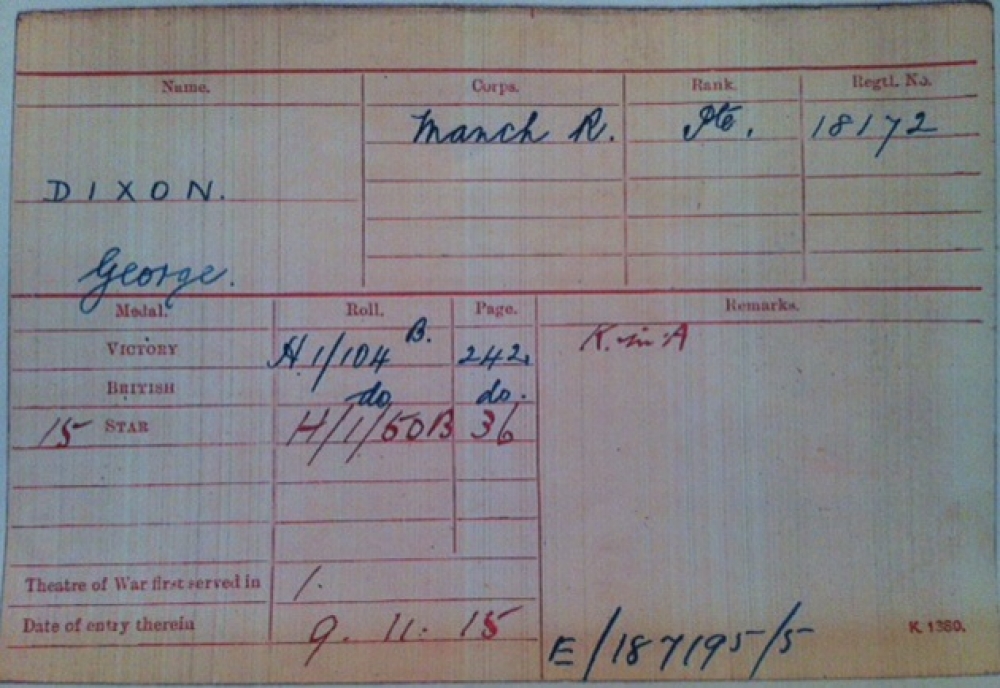 Name. Corps. Rank. Regtl. No.
Manch R. Pte. 18172
DIXON.
George.
Medal. Roll. Page. Remarks.
VICTORY H.1/104 B. 242. K. in A
BRITISH do do.
15 STAR H/1/50B 36
Theatre of War first served in 1.
Date of entry therein 9. 11. 15
E/187195/5 K. 1380.